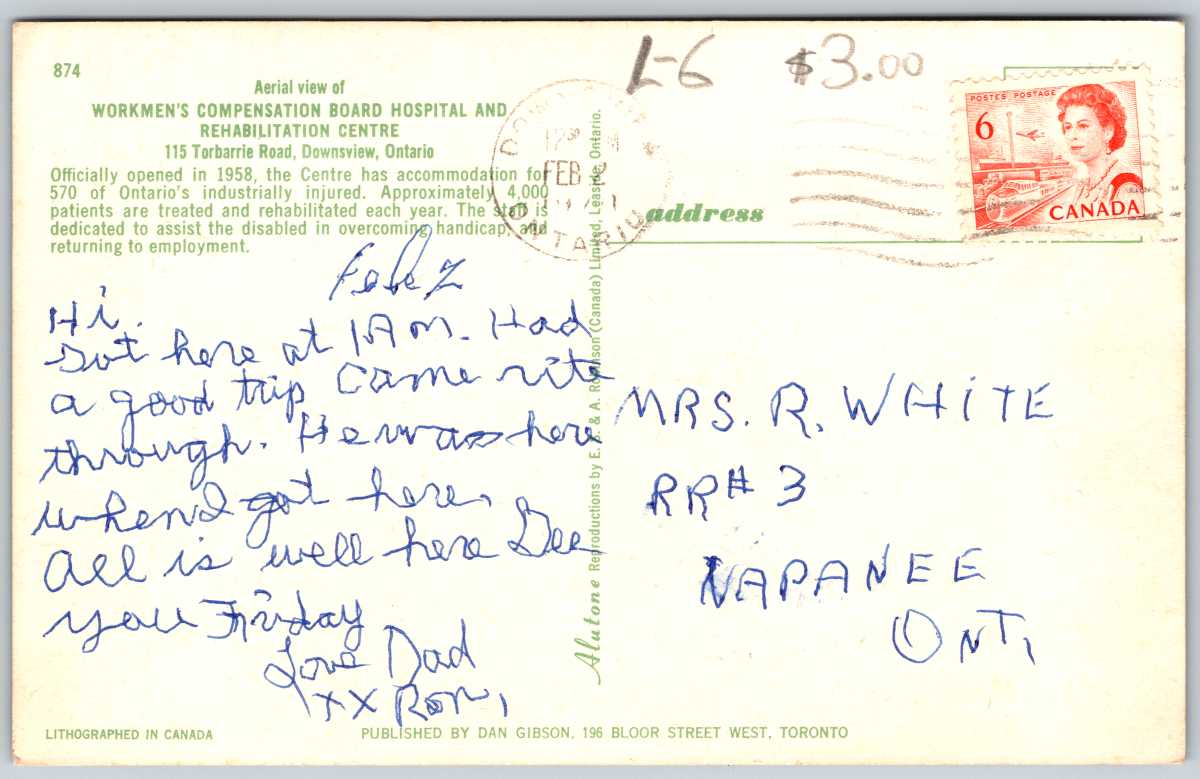 874
L-6 $3.00
Aerial view of
WORKMEN'S COMPENSATION BOARD HOSPITAL AND
REHABILITATION CENTRE
115 Torbarrie Road, Downsview, Ontario
Officially opened in 1958, the Centre has accommodation for
570 of Ontario's industrially injured. Approximately 4,000
patients are treated and rehabilitated each year. The staff is
dedicated to assist the disabled in overcoming handicap, and
returning to employment.
FEB 2
ONTARIO
POSTES POSTAGE
6
CANADA
address
Feb 2
Hi.
Got here at 1 AM. Had
a good trip Came rite
through. He was here
when I got here.
All is well here See
you Friday
Love Dad
XX Ron,
MRS. R. WHITE
RR# 3
NAPANEE
ONT,
Alutone Reproductions by E. S. & A. Robinson (Canada) Limited, Leaside, Ontario.
LITHOGRAPHED IN CANADA
PUBLISHED BY DAN GIBSON, 196 BLOOR STREET WEST, TORONTO